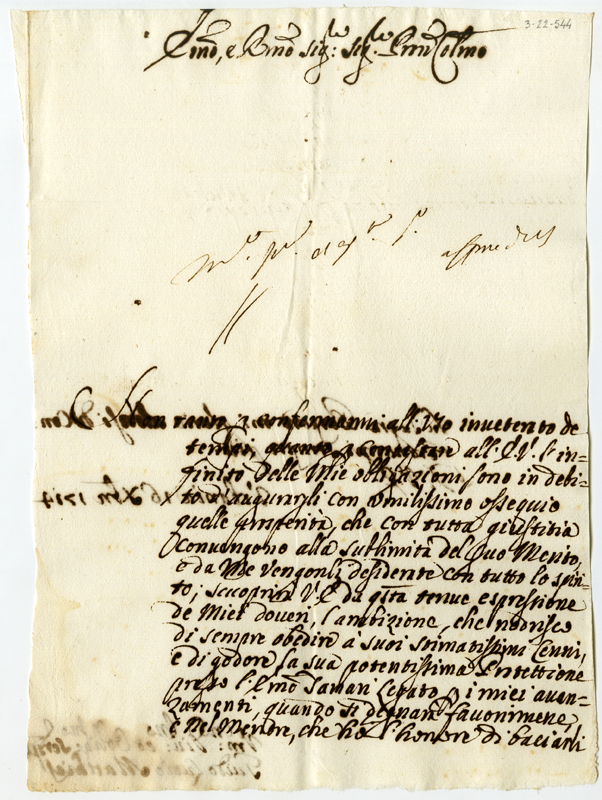 3-22-544
Emo, e Rmo Sigr: Sigr. Pron Colmo
Non tanto p conformarmi all'uso inveterato de
tempi, quanto p contestare all'E.V. l'in=
finito delle Mie obligazioni sono in debi=
to d'augurargli con umilissimo ossequio
quelle prosperità, che con tutta giustitia
convengono alla sublimità del Suo Merito,
e da Me vengonli desiderate con tutto lo spiri=
to; scuoprirà V.E. da questa tenue espressione
de Miei doveri, l'ambizione, che nodrisco
di sempre obedire à suoi stimatissimi Cenni,
e di godere la sua potentissima Protettione
presso l'Emo Legato p i miei avan=
zamenti, quando si degnarà favorirmene,
e Nel Mentre, che hò l'honore di baciarli